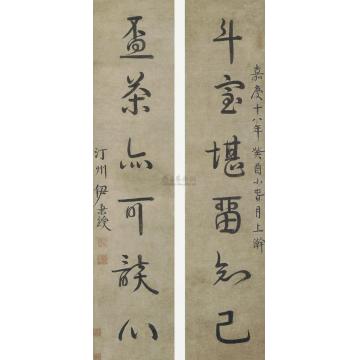 嘉慶十八年癸酉小春月上澣
斗室堪留知己
盃茶亦可談心
汀州伊秉綬